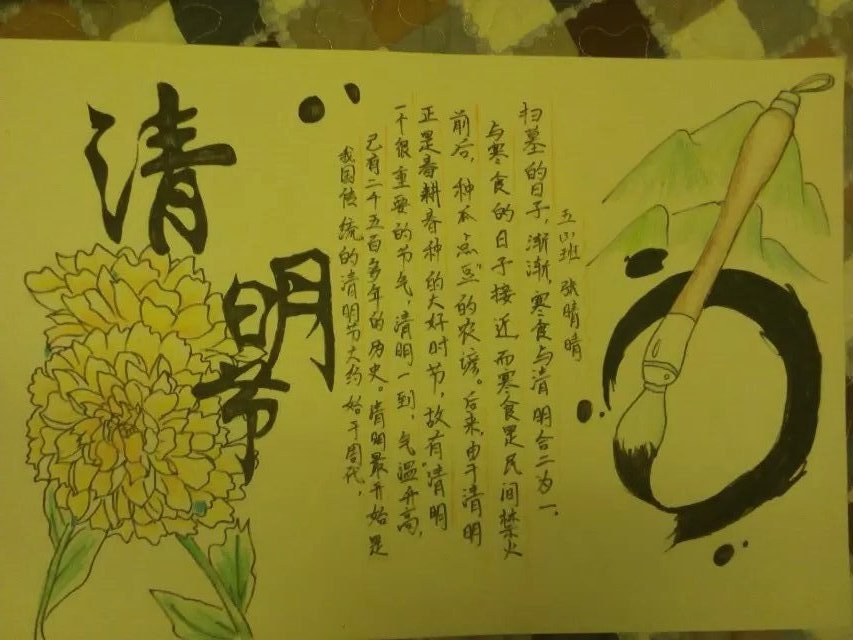 清
明
节
我国传统的清明节大约始于周代,
已有二千五百多年的历史。清明最开始是
一个很重要的节气,清明一到,气温升高,
正是春耕春种的大好时节,故有“清明
前后,种瓜点豆”的农谚。后来,由于清明
与寒食的日子接近,而寒食是民间禁火
扫墓的日子,渐渐,寒食与清明合二为一.
五 班 张晴晴